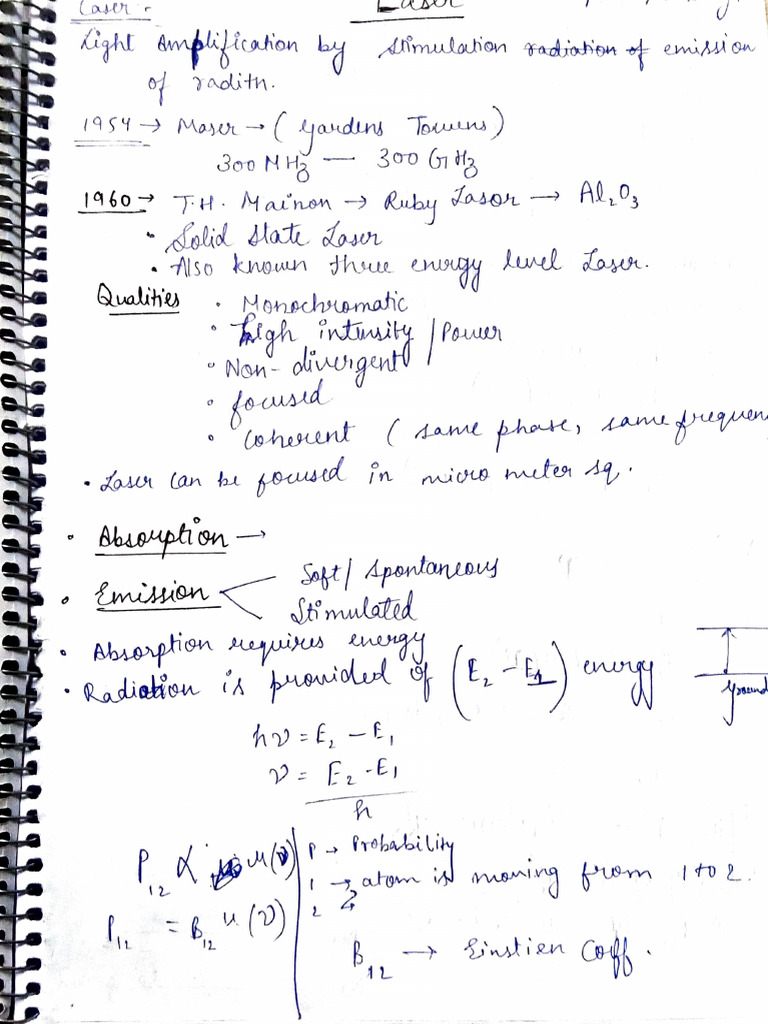 Laser
Laser :-
Light Amplification by stimulation radiation of emission
of raditn.
1954 → Maser → ( Gardens Towens)
300 MHz — 300 GHz
1960 → T.H. Mainon → Ruby Lasor → Al₂O₃
• Solid state Laser
• Also known three energy level Laser.
Qualities • Monochromatic
• high intensity / Power
• Non-divergent
• focused
• Coherent ( same phase, same frequen
• Laser can be focused in micro meter sq.
• Absorption →
• Emission < Soft / spontaneous
Stimulated
• Absorption requires energy
• Radiation is provided of (E₂ - E₁) energy
ground
hν = E₂ - E₁
ν = E₂ - E₁
h
P₁₂ ∝ u(ν) | P → Probability
1 → atom is moving from 1 to 2.
2
P₁₂ = B₁₂ u(ν)
B₁₂ → Einstien Coff.